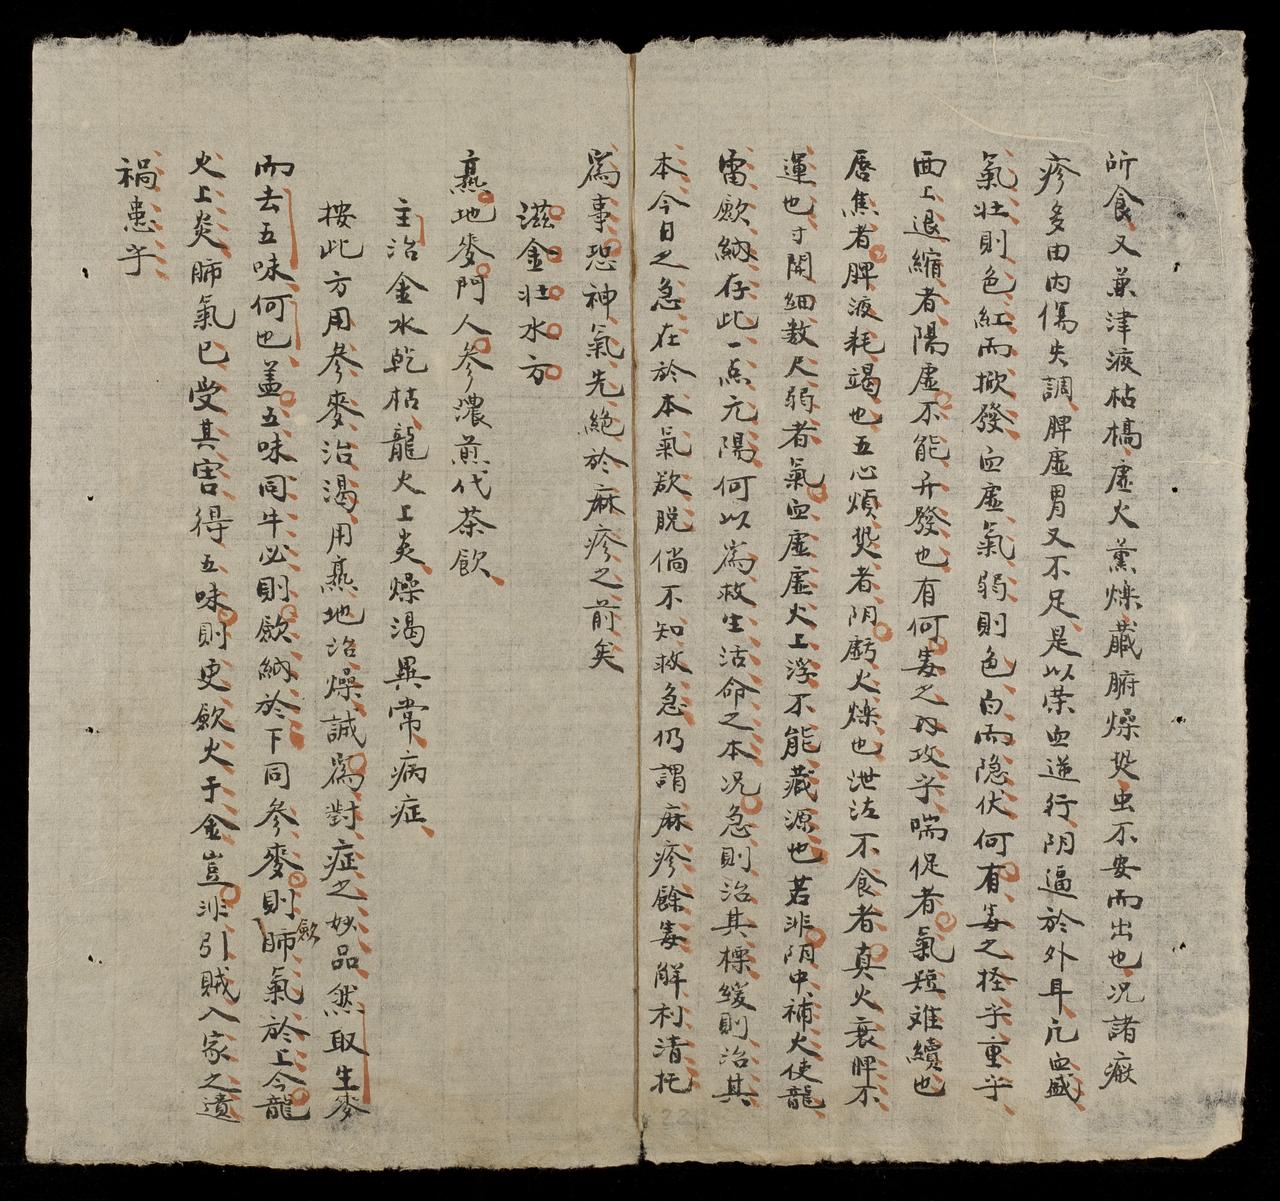 所食又兼津液枯槁虛火薰爍臟腑燥𤍠虫不安而出也况諸瘢
疹多由内傷失調脾虛胃又不足是以荣血逆行阴逼於外耳凢血盛
氣壮則色紅而掀發血虛氣弱則色白而隐伏何有毒之怪乎重乎
面上退縮者陽虛不能升發也有何毒之内攻乎喘促者氣短难續也
唇焦者脾液耗竭也五心煩𤍠者阴虧火爍也泄泻不食者真火衰脾不
運也寸関細数尺弱者氣血虛虛火上浮不能藏源也若非阴中補火使龍
雷歛納存此一点元陽何以為救生活命之本况急則治其標緩則治其
本今日之急在於本氣欲脱倘不知救急仍謂麻疹餘毒解利清托
爲事恐神氣先絶於麻疹之前矣
滋金壮水方
熟地麥門人參濃煎代茶飲
主治金水乾枯龍火上炎燥渴異常病症
按此方用參麥治渴用熟地治燥誠爲對症之妙品然取生麥
而去五味何也盖五味同牛必則歛納於下同參麥則歛肺氣於上今龍
火上炎肺氣已受其害得五味則更歛火于金豈非引賊入家之遺
禍患乎